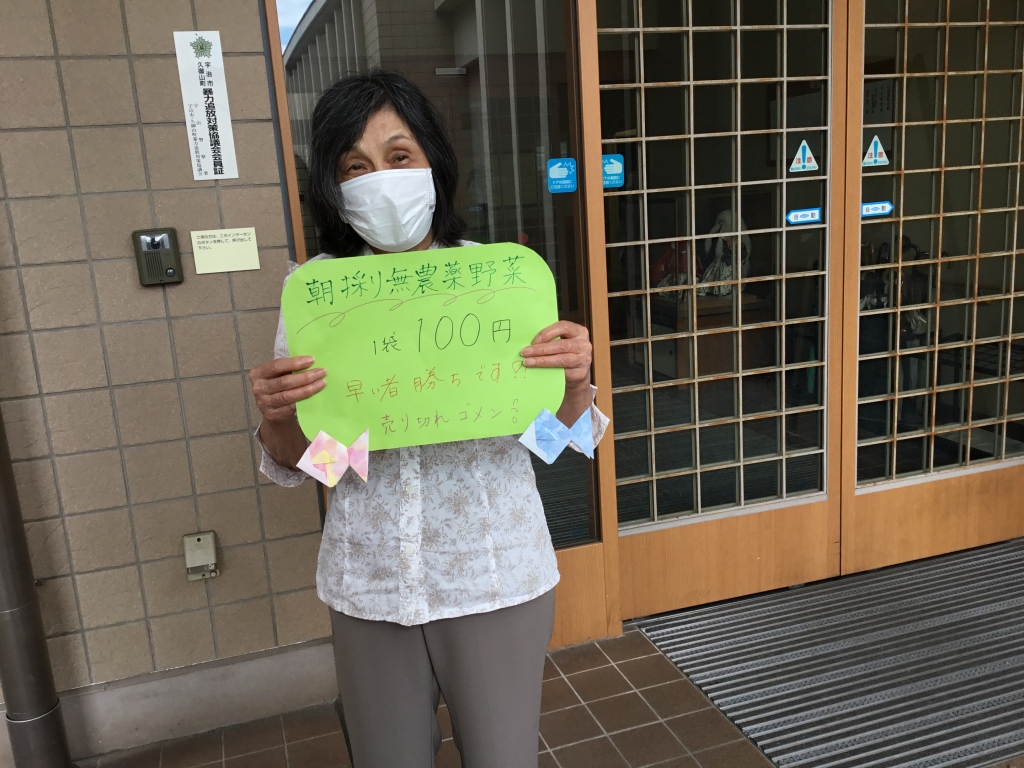 宇治市
久御山町
暴力追放対策協議会会員証
朝採り無農薬野菜
1袋 100円
早い者勝ちです!!
売り切れゴメン
注意
注意
自動
自動